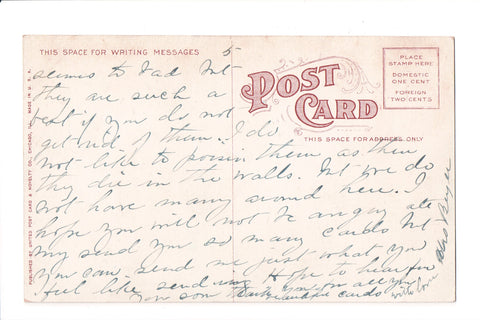 THIS SPACE FOR WRITING MESSAGES 5
POST CARD
PLACE
STAMP HERE
DOMESTIC
ONE CENT
FOREIGN
TWO CENTS
THIS SPACE FOR ADDRESS ONLY
PUBLISHED BY UNITED POST CARD & NOVELTY CO., CHICAGO, ILL. MADE IN U. S. A.
seems to bad but
they are such a
pest if you do not
get rid of them. I do
not like to poisin them as then
they die in the walls. but we do
not have many around here. I
hope you will not be angry at
my send you so many cards but
you can send me just what you
feel like send Hope to hear from
your son you all
beautiful cards with love
Mrs